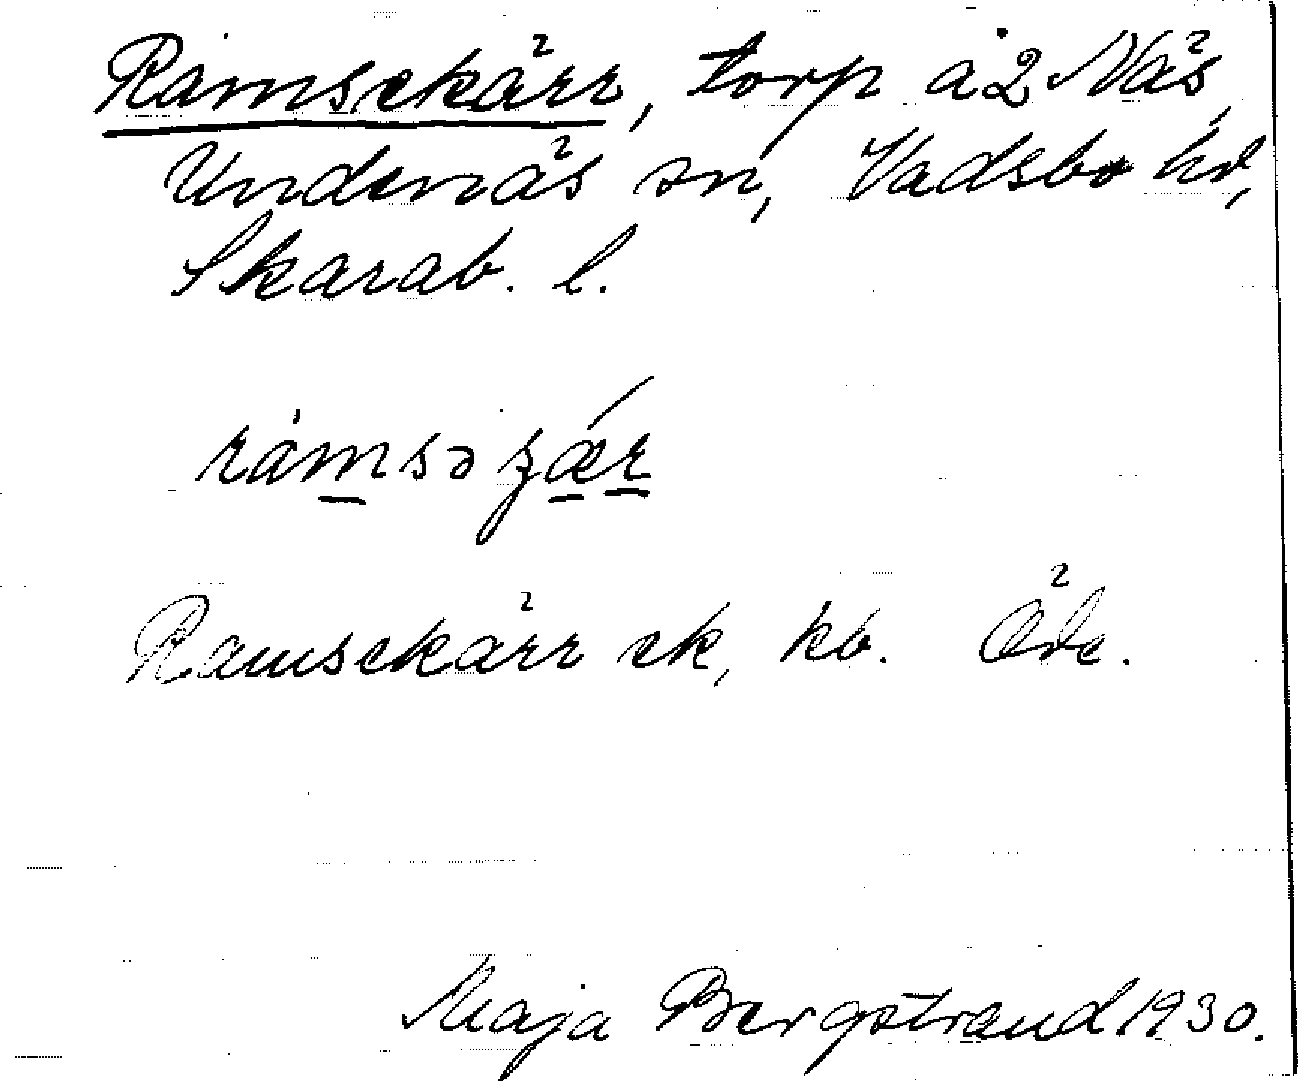 Ramsekärr, torp å 2 Näs,
Undenäs sn, Vadsbo hd,
Skarab. l.
ramsəʒæ̱ṟ
Ramsekärr ek, kb. Öde.
Maja Bergstrand 1930.